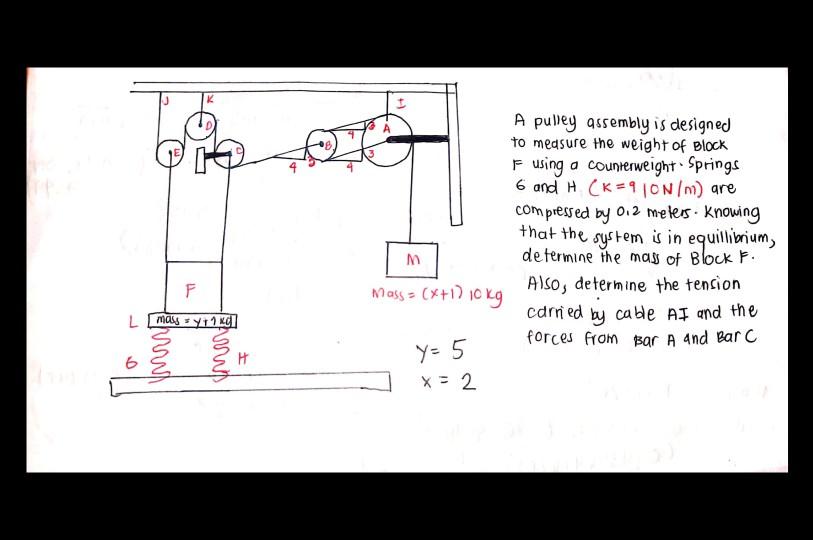 J
K
I
D
A
3
4
E
C
B
3
4
3
4
M
F
Mass = (x+1) 10 kg
L
mass = y+1 kg
G
H
y= 5
x = 2
A pulley assembly is designed
to measure the weight of Block
F using a counterweight. Springs
G and H (K=910N/m) are
compressed by 0.2 meters. Knowing
that the system is in equillibrium,
determine the mass of Block F.
Also, determine the tension
carried by cable AI and the
forces from Bar A and Bar C